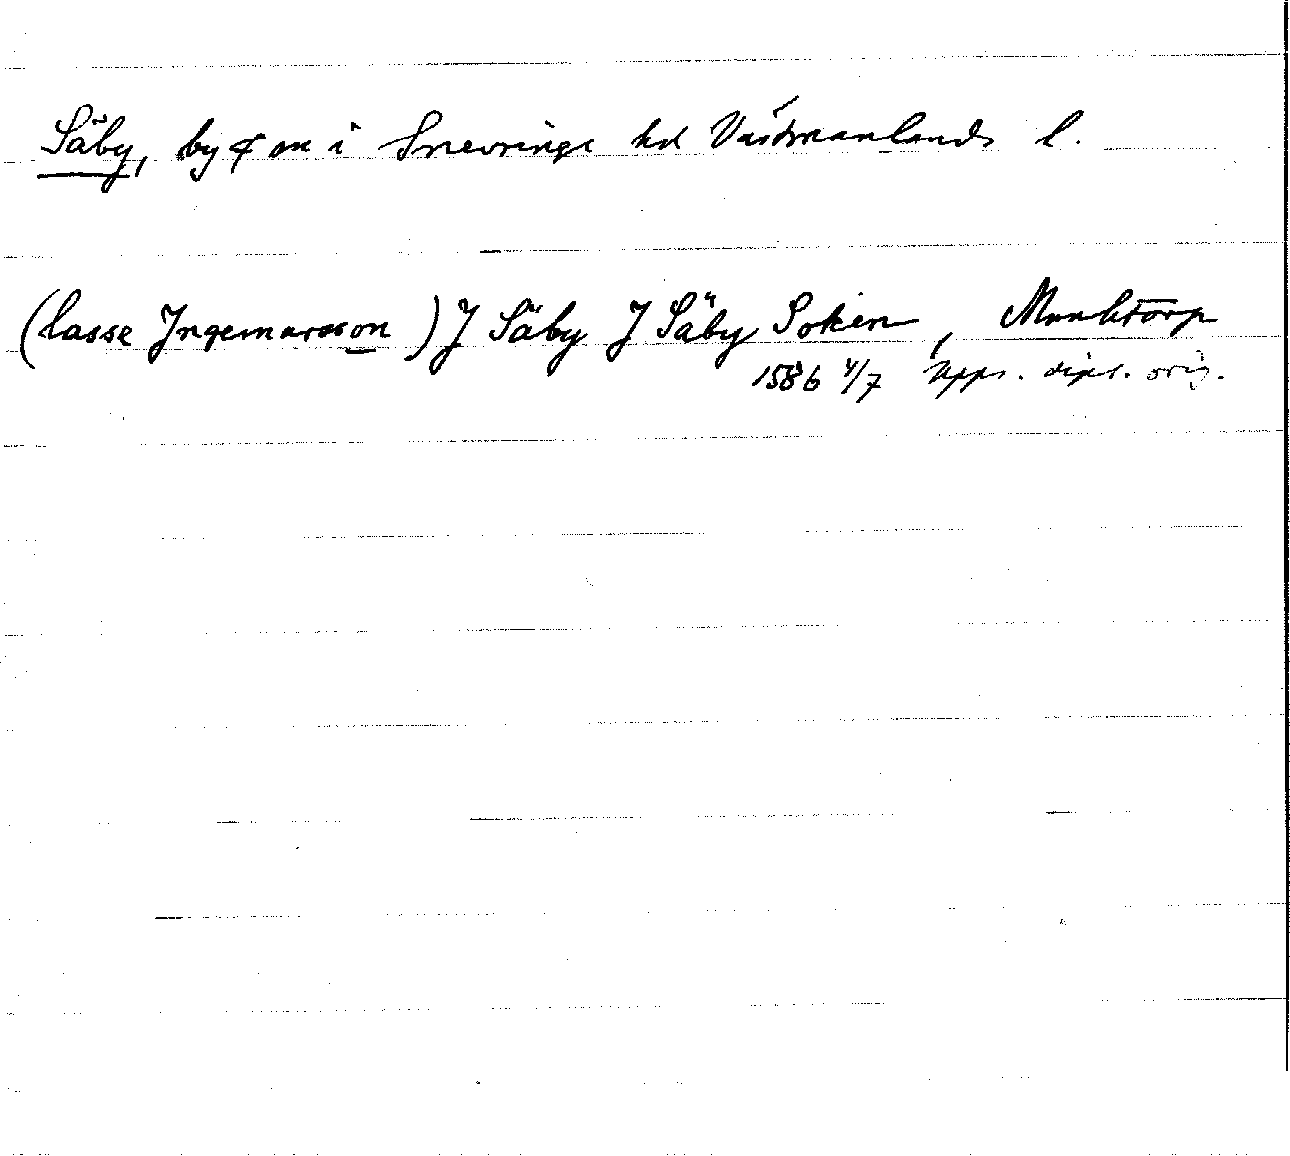 Säby, by & sn i Snevringe hd Västmanlands l.
(lasse Jngemarsson) J Säby J Säby Soken, Munktorp
1586 4/7 Upps. dipl. orig.